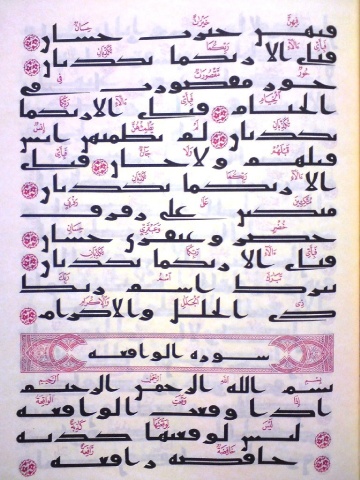 فيهن خيرت حسان
فبأي الاء ربكما تكذبان
حور مقصورت في
الخيام فبأي الاء ربكما
تكذبان لم يطمثهن إنس
قبلهم ولا جان فبأي
الاء ربكما تكذبان
متكين على رفرف
خضر وعبقري حسان
فبأي الاء ربكما تكذبان
تبرك اسم ربك
ذي الجلل والاكرام
سورة الواقعة
بسم الله الرحمن الرحيم
اذا وقعت الواقعة
ليس لوقعتها كذبة
خافضة رافعة